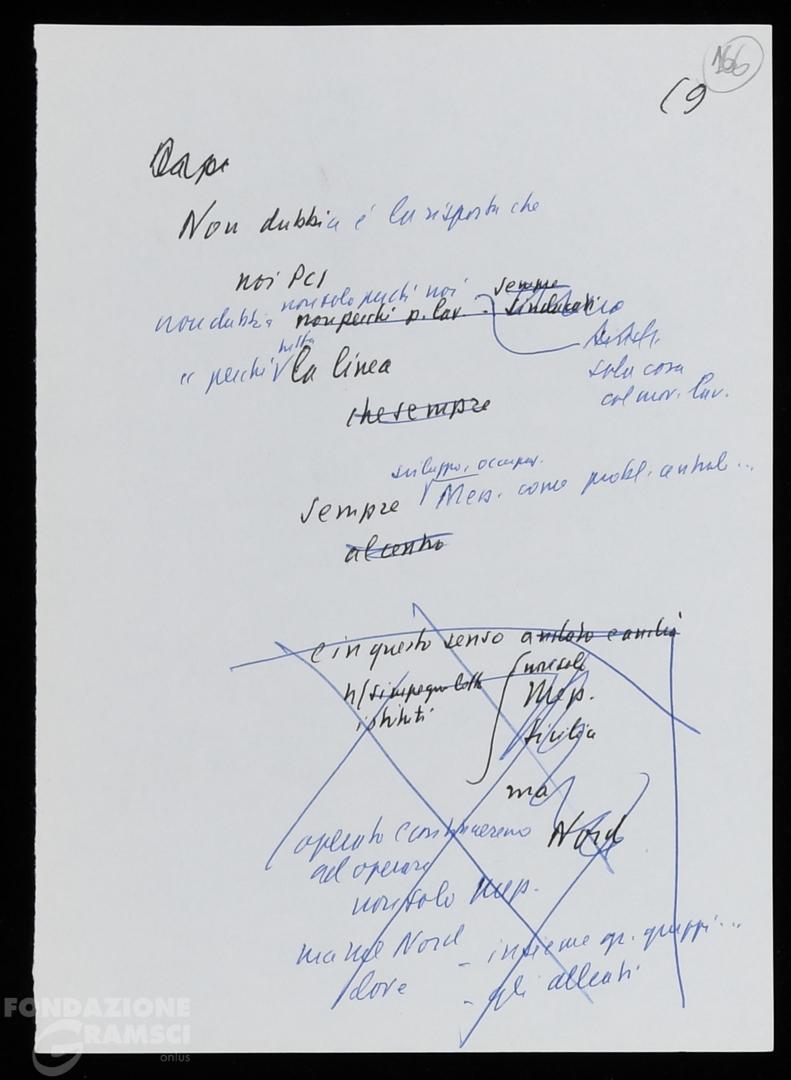 166
(9
Non dubbia è la risposta che
noi PCI
non solo perché noi
sempre
non dubbia non perché p. lav. - sindacati
e perché la linea
sola cosa
col mov. lav.
che sempre
sviluppo, occupaz.
sempre Mezz. come probl. central...
al centro
e in questo senso
non solo
istituti
Mezz.
Sicilia
ma
Nord
operato e continueremo
ad operare
non solo Mezz.
ma nel Nord
dove
- insieme gr. gruppi...
- gli alleati
FONDAZIONE
GRAMSCI
onlus